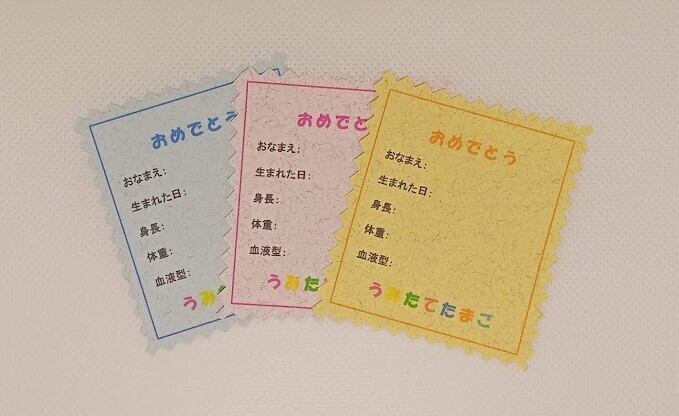 おめでとう
おなまえ:
生まれた日:
身長:
体重:
血液型:
うみ
おめでと
おなまえ:
生まれた日:
身長:
体重:
血液型:
うみた
おめでとう
おなまえ:
生まれた日:
身長:
体重:
血液型:
うみたてたまご